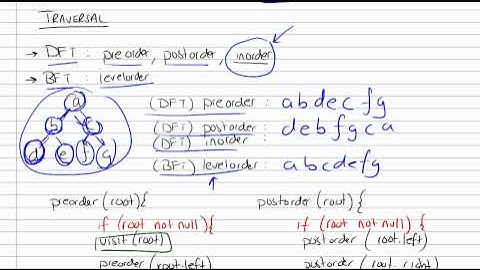 TRAVERSAL
→ DFT : preorder, postorder, inorder
→ BFT : levelorder
a
b c
d e f g
(DFT) preorder : a b d e c f g
(DFT) postorder : d e b f g c a
(DFT) inorder :
(BFT) levelorder : a b c d e f g
preorder (root) {
if (root not null) {
visit (root)
preorder (root.left)
postorder (root) {
if (root not null) {
postorder (root.left)
postorder (root.right)